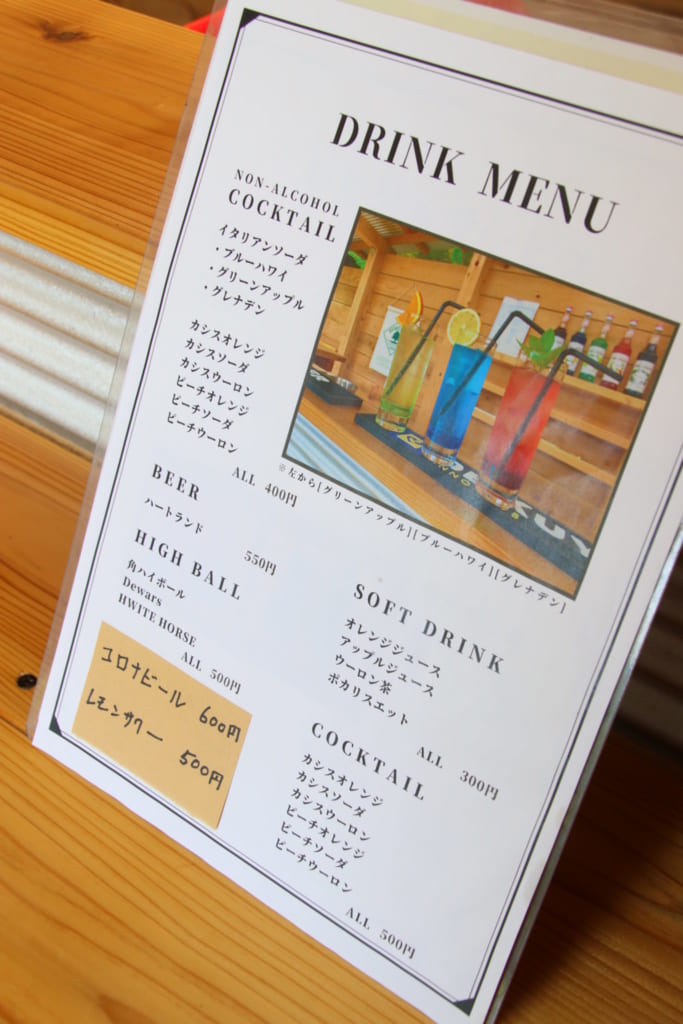 DRINK MENU
NON-ALCOHOL
COCKTAIL
イタリアンソーダ
・ブルーハワイ
・グリーンアップル
・グレナデン
カシスオレンジ
カシスソーダ
カシスウーロン
ピーチオレンジ
ピーチソーダ
ピーチウーロン
ALL 400円
※左から[グリーンアップル][ブルーハワイ][グレナデン]
BEER
ハートランド
550円
HIGH BALL
角ハイボール
Dewars
HWITE HORSE
ALL 500円
コロナビール 600円
レモンサワー 500円
SOFT DRINK
オレンジジュース
アップルジュース
ウーロン茶
ポカリスエット
ALL 300円
COCKTAIL
カシスオレンジ
カシスソーダ
カシスウーロン
ピーチオレンジ
ピーチソーダ
ピーチウーロン
ALL 500円